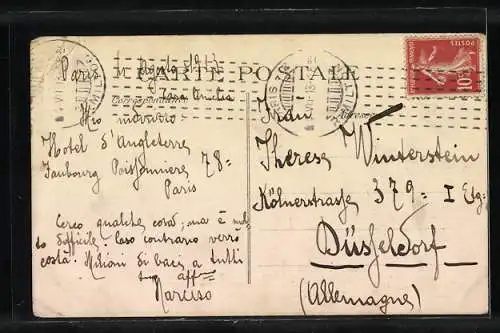 Paris 11 Agosto 1913
CARTE POSTALE
Correspondance
Cara Amelia
Mio indirizzo
Hotel d'Angleterre
Faubourg Poissonniere 78=
Paris
Cerco qualche cosa, ma è mol
to difficile. Caso contrario verrò
costà. Milioni di baci a tutti
tuo affmo
Narciso
POSTES
10
Frau
Therese Winterstein
Kölnerstraße 379= I Etg=
Düsseldorf
(Allemagne)